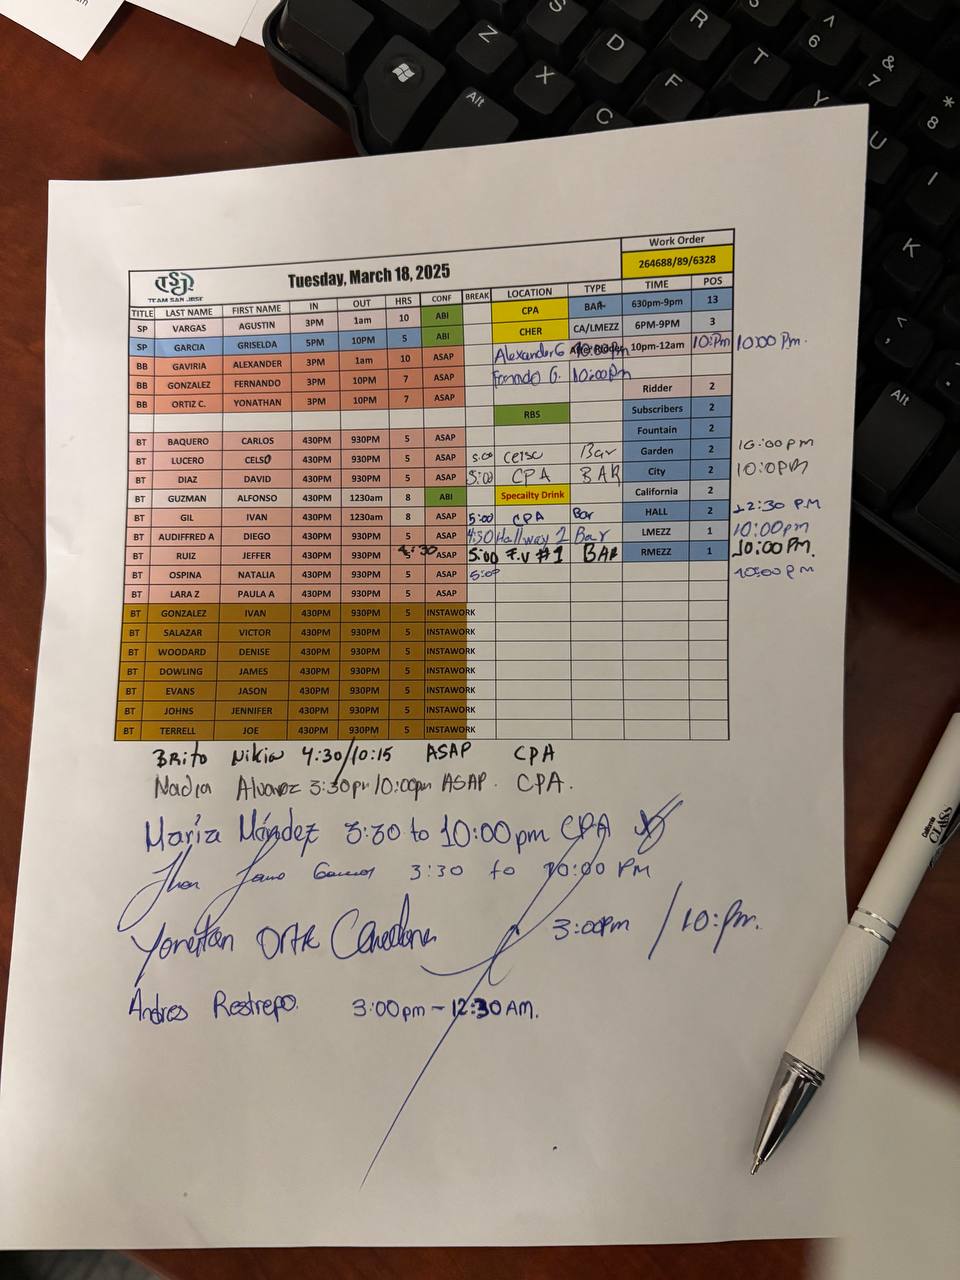 Work Order
264688/89/6328
TSJ
TEAM SAN JOSE
Tuesday, March 18, 2025
TITLE LAST NAME FIRST NAME IN OUT HRS CONF BREAK LOCATION TYPE TIME POS
SP VARGAS AGUSTIN 3PM 1am 10 ABI CPA BAR 630pm-9pm 13
SP GARCIA GRISELDA 5PM 10PM 5 ABI CHER CA/LMEZZ 6PM-9PM 3
BB GAVIRIA ALEXANDER 3PM 1am 10 ASAP Alexander G 10pm-12am 10:Pm 10:00 Pm.
BB GONZALEZ FERNANDO 3PM 10PM 7 ASAP Fernando G. 10:00pm
BB ORTIZ C. YONATHAN 3PM 10PM 7 ASAP Ridder 2
RBS Subscribers 2
BT BAQUERO CARLOS 430PM 930PM 5 ASAP Fountain 2
BT LUCERO CELSO 430PM 930PM 5 ASAP 5:00 celso Bar Garden 2 10:00pm
BT DIAZ DAVID 430PM 930PM 5 ASAP 5:00 CPA BAR City 2 10:0pm
BT GUZMAN ALFONSO 430PM 1230am 8 ABI Specailty Drink California 2
BT GIL IVAN 430PM 1230am 8 ASAP 5:00 CPA Bar HALL 2 12:30 PM
BT AUDIFFRED A DIEGO 430PM 930PM 5 ASAP 4:30 Hallway 2 Bar LMEZZ 1 10:00pm
BT RUIZ JEFFER 430PM 930PM 5 4:30 ASAP 5:00 F.V #1 BAR RMEZZ 1 10:00 PM.
BT OSPINA NATALIA 430PM 930PM 5 ASAP 5:00 10:00 PM
BT LARA Z PAULA A 430PM 930PM 5 ASAP
BT GONZALEZ IVAN 430PM 930PM 5 INSTAWORK
BT SALAZAR VICTOR 430PM 930PM 5 INSTAWORK
BT WOODARD DENISE 430PM 930PM 5 INSTAWORK
BT DOWLING JAMES 430PM 930PM 5 INSTAWORK
BT EVANS JASON 430PM 930PM 5 INSTAWORK
BT JOHNS JENNIFER 430PM 930PM 5 INSTAWORK
BT TERRELL JOE 430PM 930PM 5 INSTAWORK
Brito Nikia 4:30/10:15 ASAP CPA
Nadia Alvarez 3:30pm/10:00pm ASAP. CPA.
María Méndez 3:30 to 10:00pm CPA
Jhon 3:30 to 10:00 PM
3:00pm / 10:pm.
Andres Restrepo. 3:00pm - 12:30 AM.
S
Z
D
R
6
&
7
*
8
Alt
X
F
T
C
Y
U
I
K
L
<
,
Alt
California
CLASS